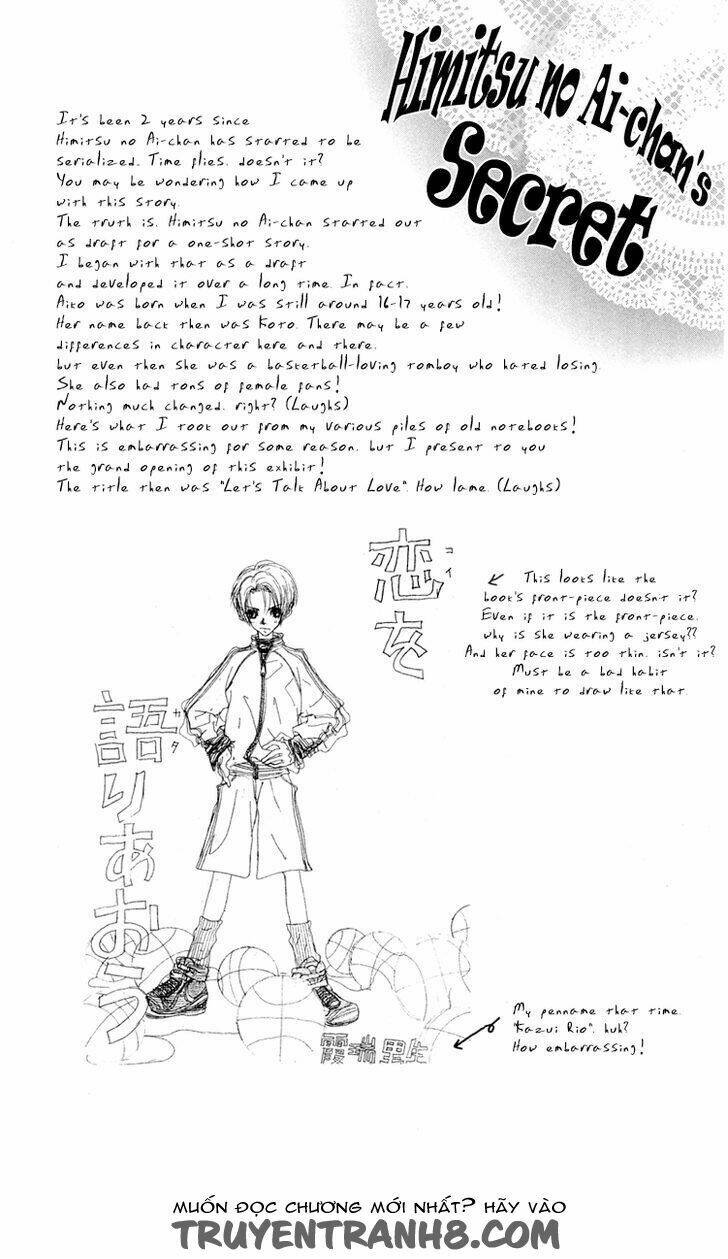 Himitsu no Ai-chan's
Secret
It's been 2 years since
Himitsu no Ai-chan has started to be
serialized. Time flies, doesn't it?
You may be wondering how I came up
with this story.
The truth is, Himitsu no Ai-chan started out
as draft for a one-shot story.
I began with that as a draft
and developed it over a long time. In fact,
Aiko was born when I was still around 16-17 years old!
Her name back then was Koto. There may be a few
differences in character here and there,
but even then she was a basketball-loving tomboy who hated losing.
She also had tons of female fans!
Nothing much changed, right? (Laughs)
Here's what I took out from my various piles of old notebooks!
This is embarrassing for some reason, but I present to you
the grand opening of this exhibit!
The title then was "Let's Talk About Love". How lame. (Laughs)
恋を
コイ
語りあおう
カタ
This looks like the
book's front-piece doesn't it?
Even if it is the front-piece,
why is she wearing a jersey??
And her face is too thin, isn't it?
Must be a bad habit
of mine to draw like that.
My penname that time.
"Kazui Rio", huh?
How embarrassing!
霞瑞里生
MUỐN ĐỌC CHƯƠNG MỚI NHẤT? HÃY VÀO
TRUYENTRANH8.COM